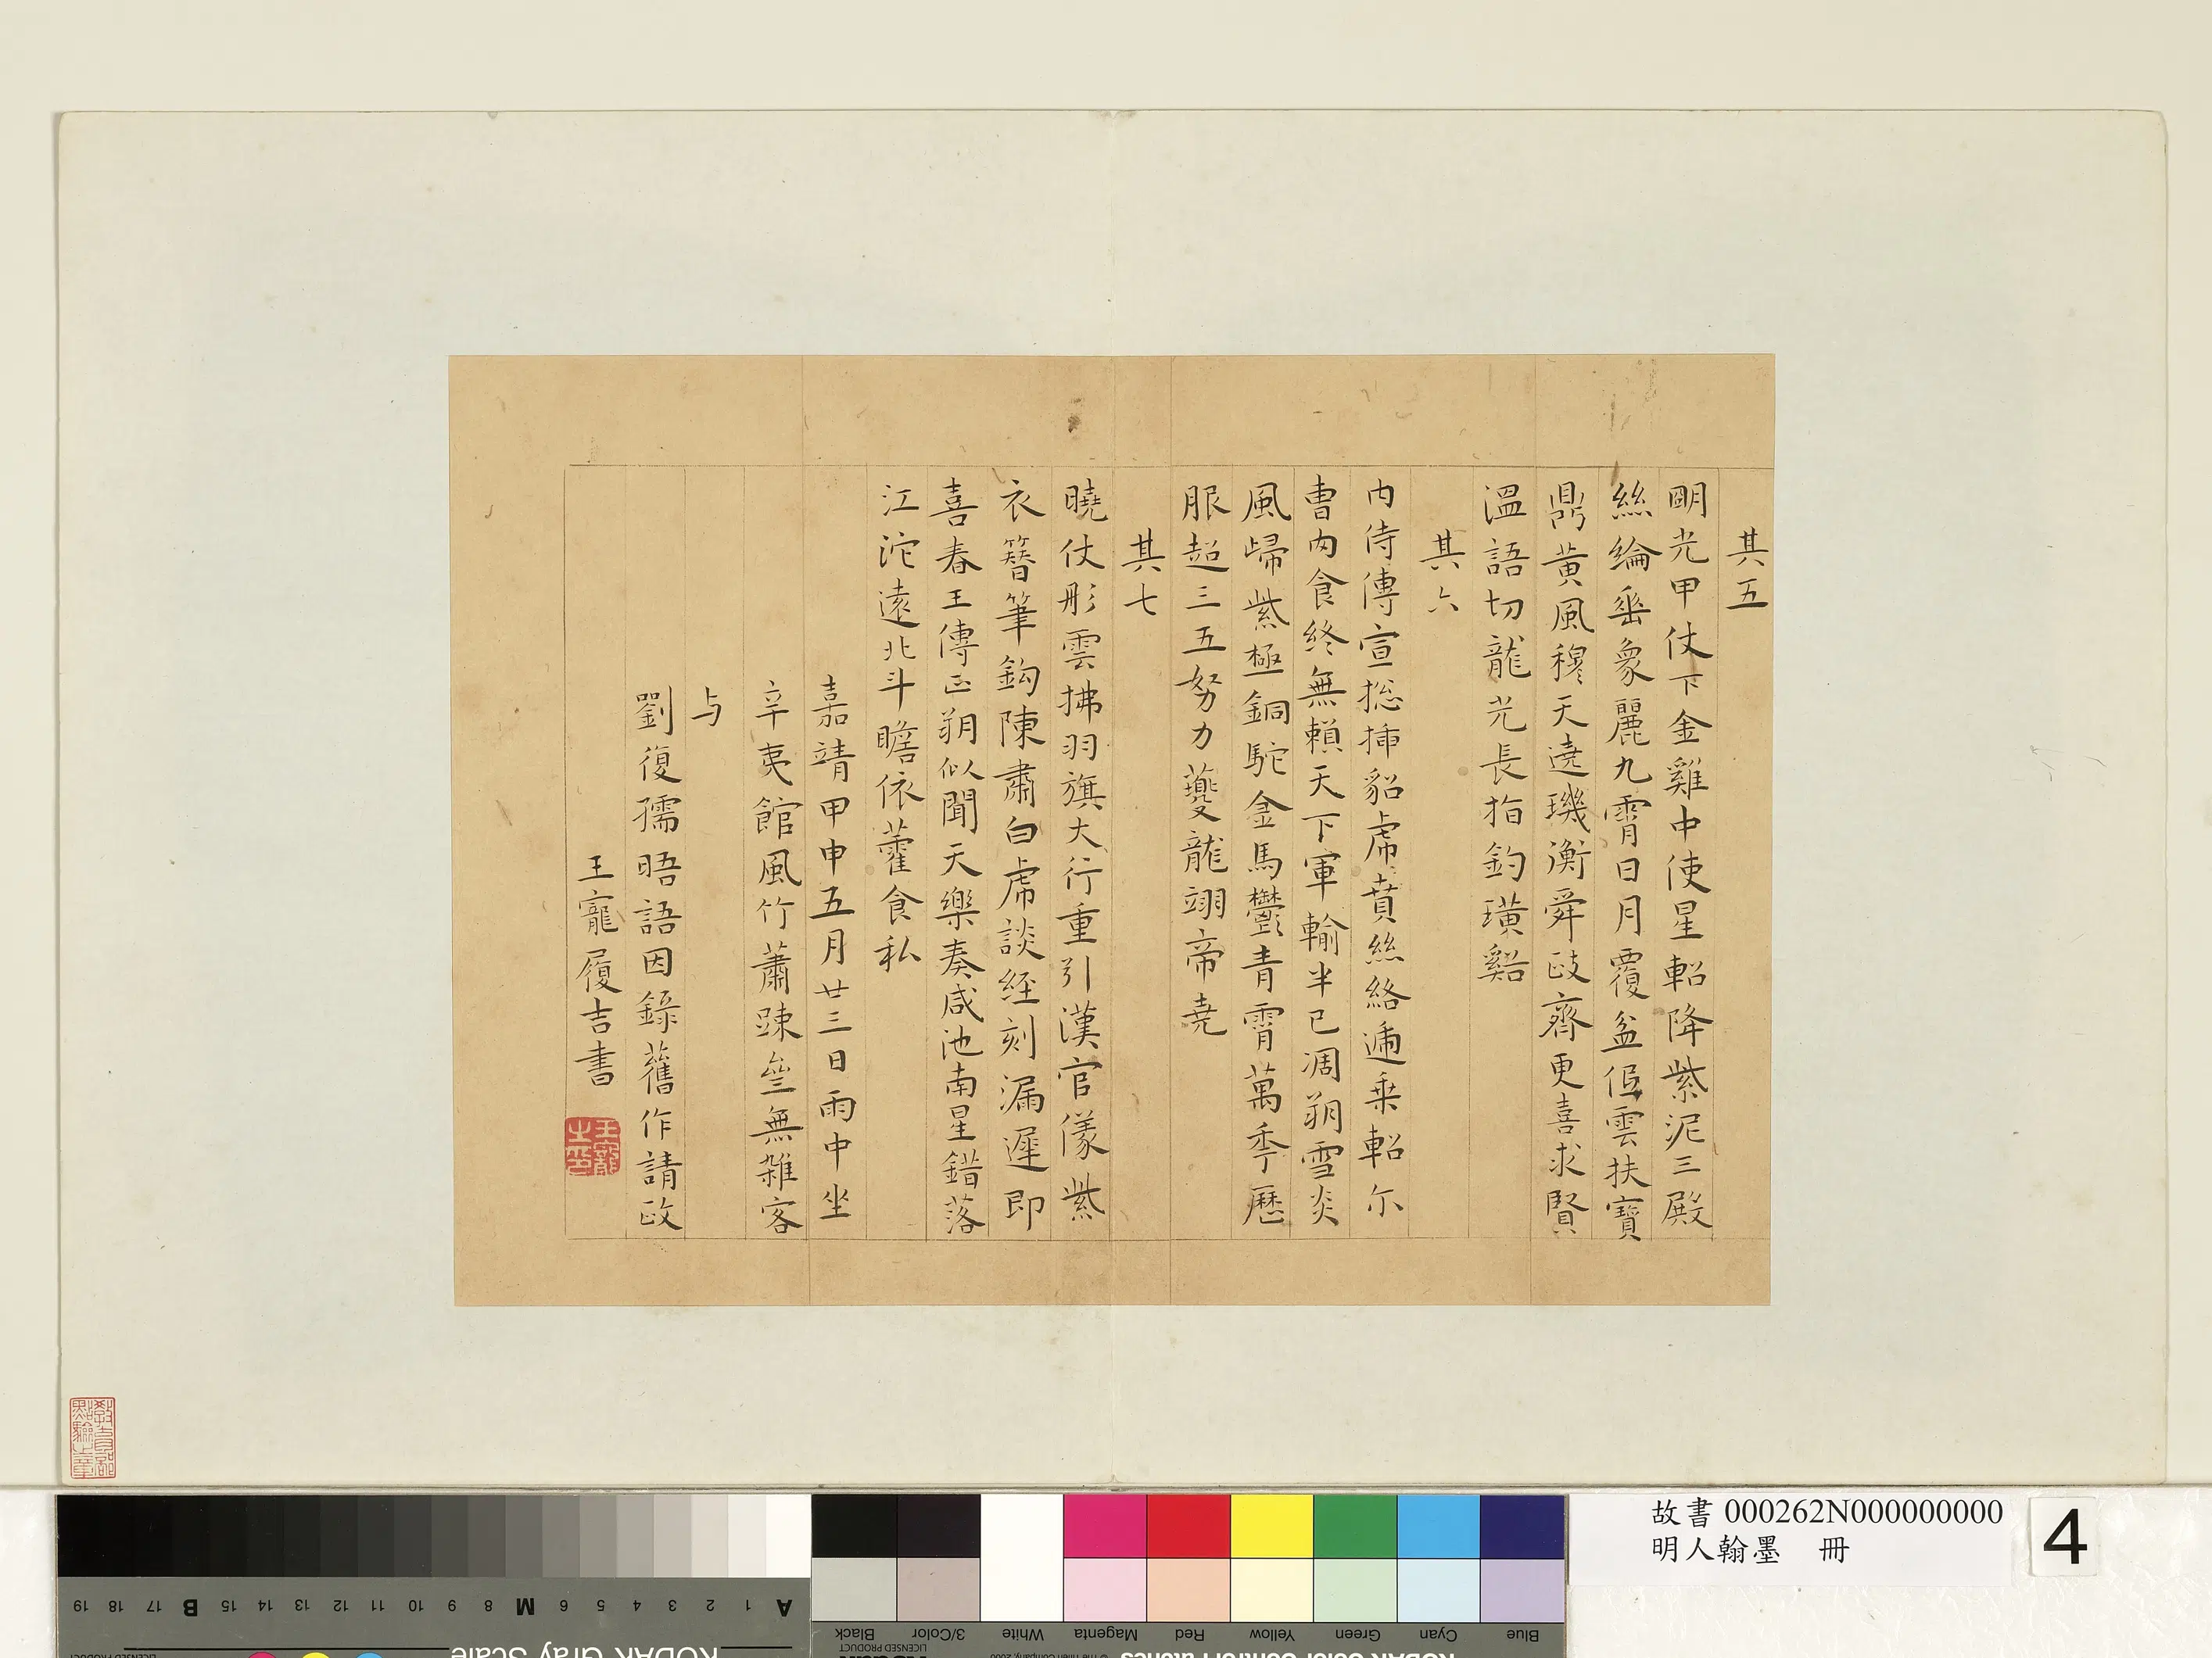 其五
明光甲仗下金雞中使星軺降紫泥三殿
絲綸垂象麗九霄日月覆盆低雲扶寶
鼎黃風穆天遶璣衡舜政齊更喜求賢
溫語切龍光長指釣璜谿
其六
內侍傳宣捴揷貂虎賁絲絡逓乗軺尔
曹肉食終無賴天下軍輸半已凋朔雪炎
風歸紫極銅駝金馬鬱青霄萬秊歷
服超三五努力夔龍翊帝堯
其七
曉仗彤雲拂羽旗大行重引漢官儀紫
衣簪筆鈎陳肅白虎談經刻漏遲即
喜春王傳正朔似聞天樂奏咸池南星錯落
江沱遠北斗瞻依藿食私
嘉靖甲申五月廿三日雨中坐
辛夷館風竹蕭踈無雜客
与
劉復孺晤語因錄舊作請政
王寵履吉書
王寵之印
教育部點驗之章
故書 000262N000000000
明人翰墨 冊
4
A 1 2 3 4 5 6 M 8 9 10 11 12 13 14 15 B 17 18 19
KODAK Gray Scale
Blue Cyan Green Yellow Red Magenta White 3/Color Black
LICENSED PRODUCT
© The Tiffen Company, 2000
KODAK Color Control Patches